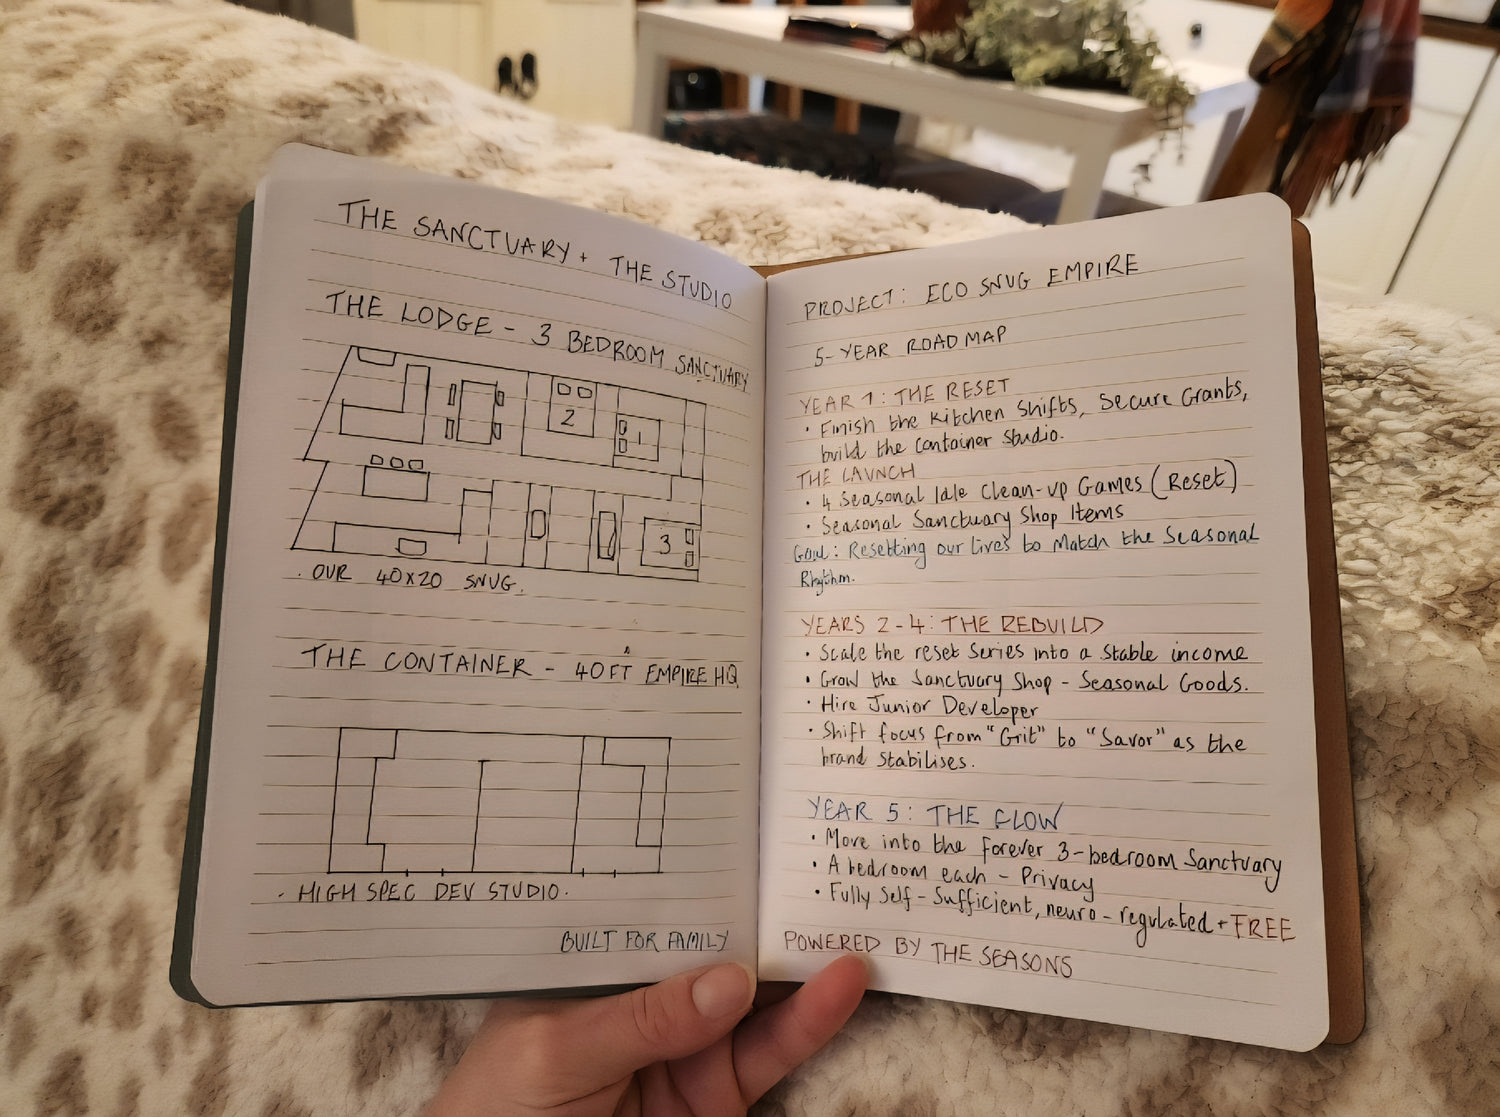 THE SANCTUARY + THE STUDIO
THE LODGE - 3 BEDROOM SANCTUARY
2
1
3
. OUR 40x20 SNUG.
THE CONTAINER - 40FT EMPIRE HQ
. HIGH SPEC DEV STUDIO.
BUILT FOR FAMILY
PROJECT: ECO SNUG EMPIRE
5-YEAR ROADMAP
YEAR 1: THE RESET
• Finish the Kitchen Shifts, Secure Grants,
build the Container Studio.
THE LAUNCH
• 4 Seasonal Idle Clean-up Games (Reset)
• Seasonal Sanctuary Shop Items
Goal: Resetting our lives to Match the Seasonal
Rhythm.
YEARS 2-4: THE REBUILD
• Scale the reset Series into a Stable income
• Grow the Sanctuary Shop - Seasonal Goods.
• Hire Junior Developer
• Shift focus from "Grit" to "Savor" as the
brand Stabilises.
YEAR 5: THE FLOW
• Move into the forever 3-bedroom Sanctuary
• A bedroom each - Privacy
• Fully Self-Sufficient, neuro-regulated + FREE
POWERED BY THE SEASONS